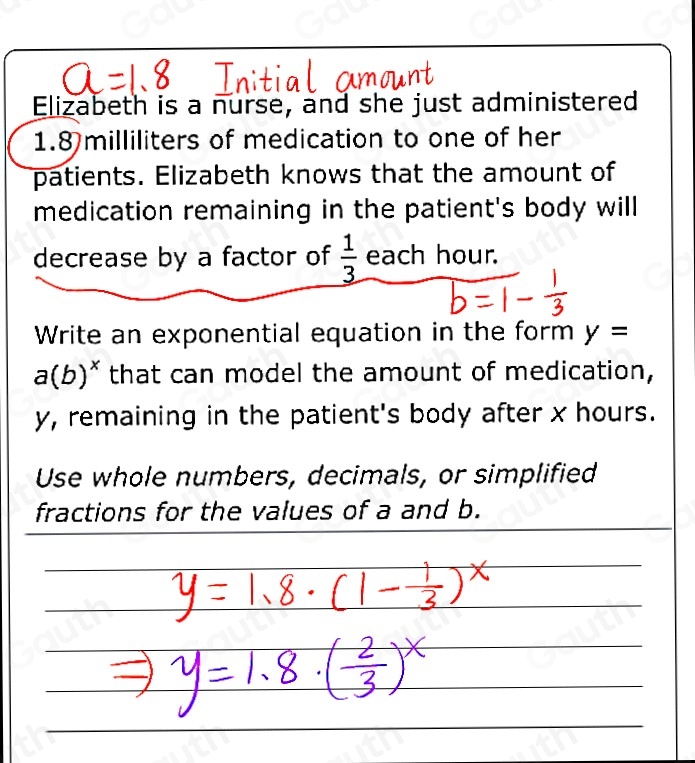 a=1.8 Initial amount
Elizabeth is a nurse, and she just administered
1.8 milliliters of medication to one of her
patients. Elizabeth knows that the amount of
medication remaining in the patient's body will
decrease by a factor of 1/3 each hour.
b=1-1/3
Write an exponential equation in the form y =
a(b)ˣ that can model the amount of medication,
y, remaining in the patient's body after x hours.
Use whole numbers, decimals, or simplified
fractions for the values of a and b.
y=1.8·(1-1/3)ˣ
⇒ y=1.8·(2/3)ˣ